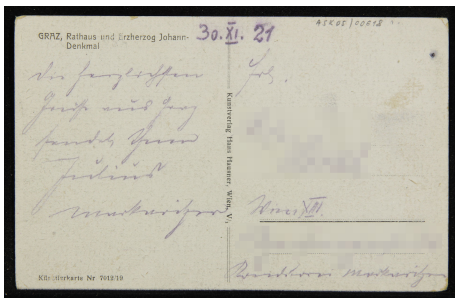 GRAZ, Rathaus und Erzherzog Johann-
Denkmal
30.XI. 21
ASK05/00618
Die herzlichsten
Grüße aus Graz
sendet Ihnen
Julius
Frl.
Wien XIII.
Kunstverlag Hans Hausner, Wien, V/
Künstlerkarte Nr 7012/10